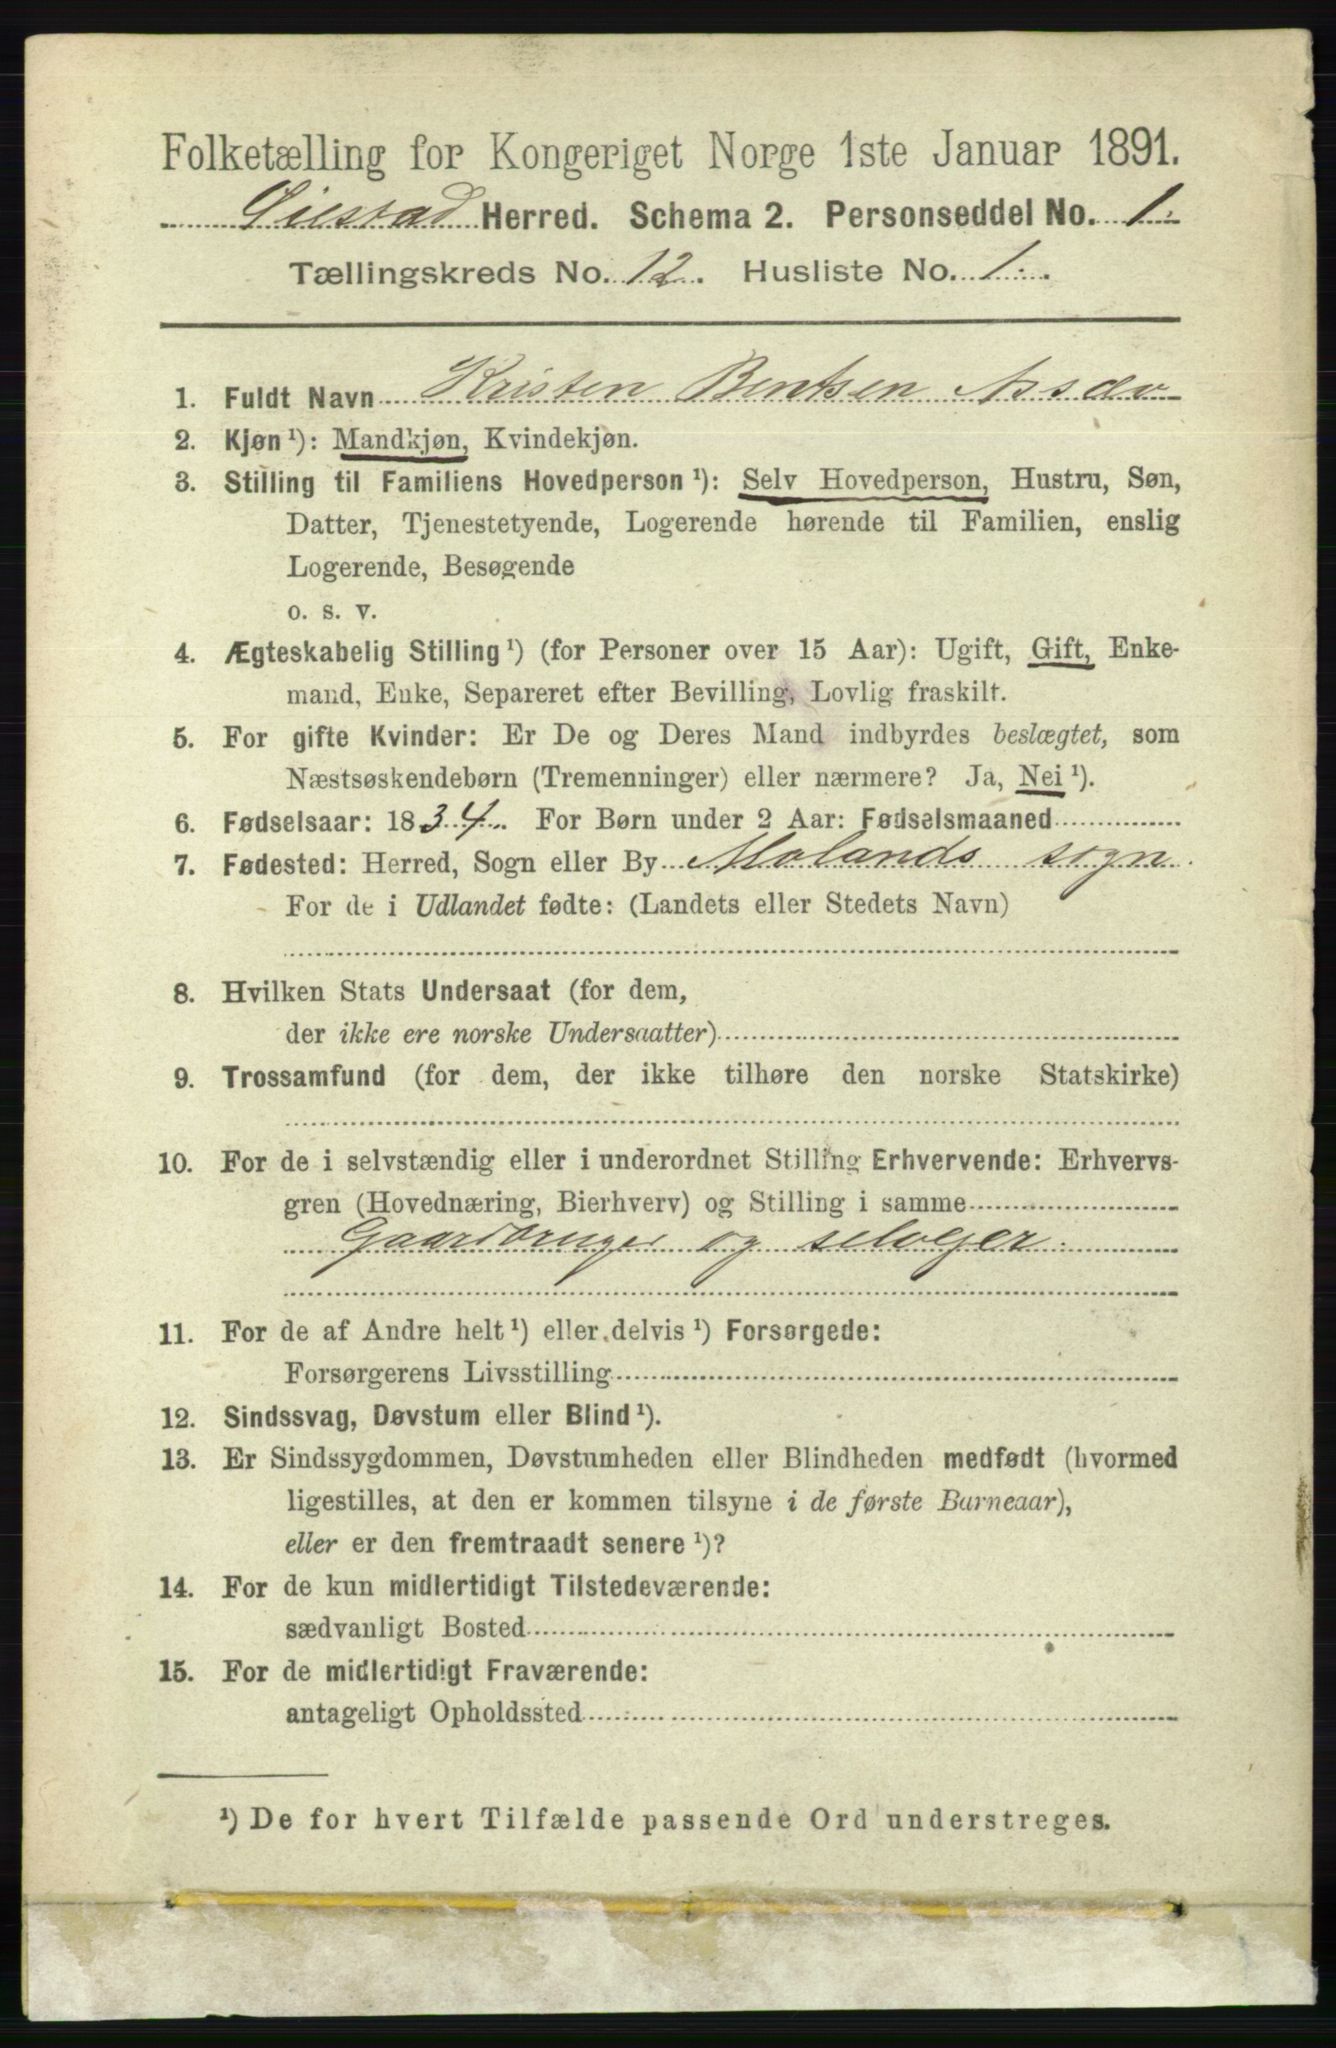 Folketælling for Kongeriget Norge 1ste Januar 1891.
Øiestad Herred. Schema 2. Personseddel No. 1.
Tællingskreds No. 12. Husliste No. 1.
1. Fuldt Navn Kristen Bentsen Assev
2. Kjøn ¹): Mandkjøn, Kvindekjøn.
3. Stilling til Familiens Hovedperson ¹): Selv Hovedperson, Hustru, Søn,
Datter, Tjenestetyende, Logerende hørende til Familien, enslig
Logerende, Besøgende
o. s. v.
4. Ægteskabelig Stilling ¹) (for Personer over 15 Aar): Ugift, Gift, Enke-
mand, Enke, Separeret efter Bevilling, Lovlig fraskilt.
5. For gifte Kvinder: Er De og Deres Mand indbyrdes beslægtet, som
Næstsøskendebørn (Tremenninger) eller nærmere? Ja, Nei ¹).
6. Fødselsaar: 1834. For Børn under 2 Aar: Fødselsmaaned
7. Fødested: Herred, Sogn eller By Molands sogn.
For de i Udlandet fødte: (Landets eller Stedets Navn)
8. Hvilken Stats Undersaat (for dem,
der ikke ere norske Undersaatter)
9. Trossamfund (for dem, der ikke tilhøre den norske Statskirke)
10. For de i selvstændig eller i underordnet Stilling Erhvervende: Erhvervs-
gren (Hovednæring, Bierhverv) og Stilling i samme
Gaardbruger og selveger.
11. For de af Andre helt ¹) eller delvis ¹) Forsørgede:
Forsørgerens Livsstilling
12. Sindssvag, Døvstum eller Blind ¹).
13. Er Sindssygdommen, Døvstumheden eller Blindheden medfødt (hvormed
ligestilles, at den er kommen tilsyne i de første Barneaar),
eller er den fremtraadt senere ¹)?
14. For de kun midlertidigt Tilstedeværende:
sædvanligt Bosted
15. For de midlertidigt Fraværende:
antageligt Opholdssted
¹) De for hvert Tilfælde passende Ord understreges.